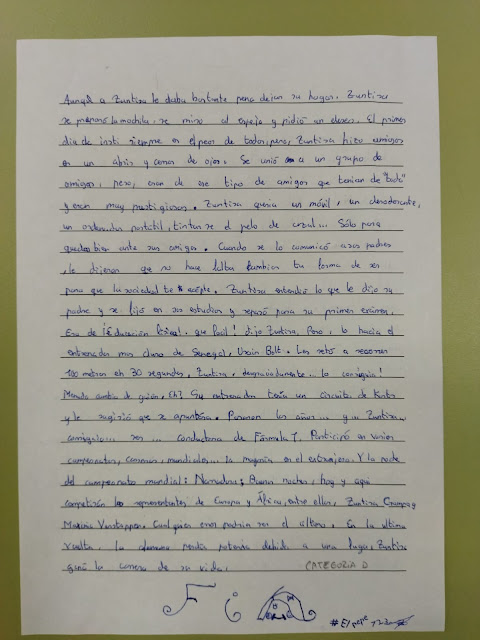 Aunqe a Zuntiza le daba bastante pena dejar su hogar, Zuntiza
se preparó la mochila, se miró al espejo y pidió un deseo. El primer
día de insti siempre es el peor de todos, pero, Zuntiza hizo amigos
en un abrir y cerrar de ojos. Se unió a un grupo de
amigos, pero, eran de ese tipo de amigos que tenían de "todo"
y eran muy prestigiosos. Zuntiza quería un móvil, un desodorante,
un ordenador portátil, tintarse el pelo de color... Sólo para
quedar bien ante sus amigos. Cuando se lo comunicó a sus padres
, le dijeron que no hace falta cambiar tu forma de ser
para que la sociedad te acepte. Zuntiza entendió lo que le dijo su
padre y se fijó en sus estudios y repasó para su primer examen.
Era de ¡Educación física! que fácil! dijo Zuntiza, Pero, lo hacía el
entrenador más duro de Senegal, Usain Bolt. Les retó a recorrer
100 metros en 30 segundos, Zuntiza, desgraciadamente... lo consiguió!
Menudo cambio de guión, Eh? Su entrenador tenía un circuito de karts
y le sugirió que se apuntara. Pasaron los años... y... Zuntiza...
consiguió... ser... conductora de Fórmula 1. Participó en varios
campeonatos, carreras, mundiales... la mayoría en el extranjero. Y la noche
del campeonato mundial: Narrador: Buena noches, hoy y aquí
competirán los representantes de Europa y África, entre ellos, Zuntiza
Maxima Verstappen. Cualquier error podría ser el último. En la última
vuelta, la alemana perdía potencia debido a una fuga, Zuntiza
ganó la carrera de su vida.
CATEGORIA D
F